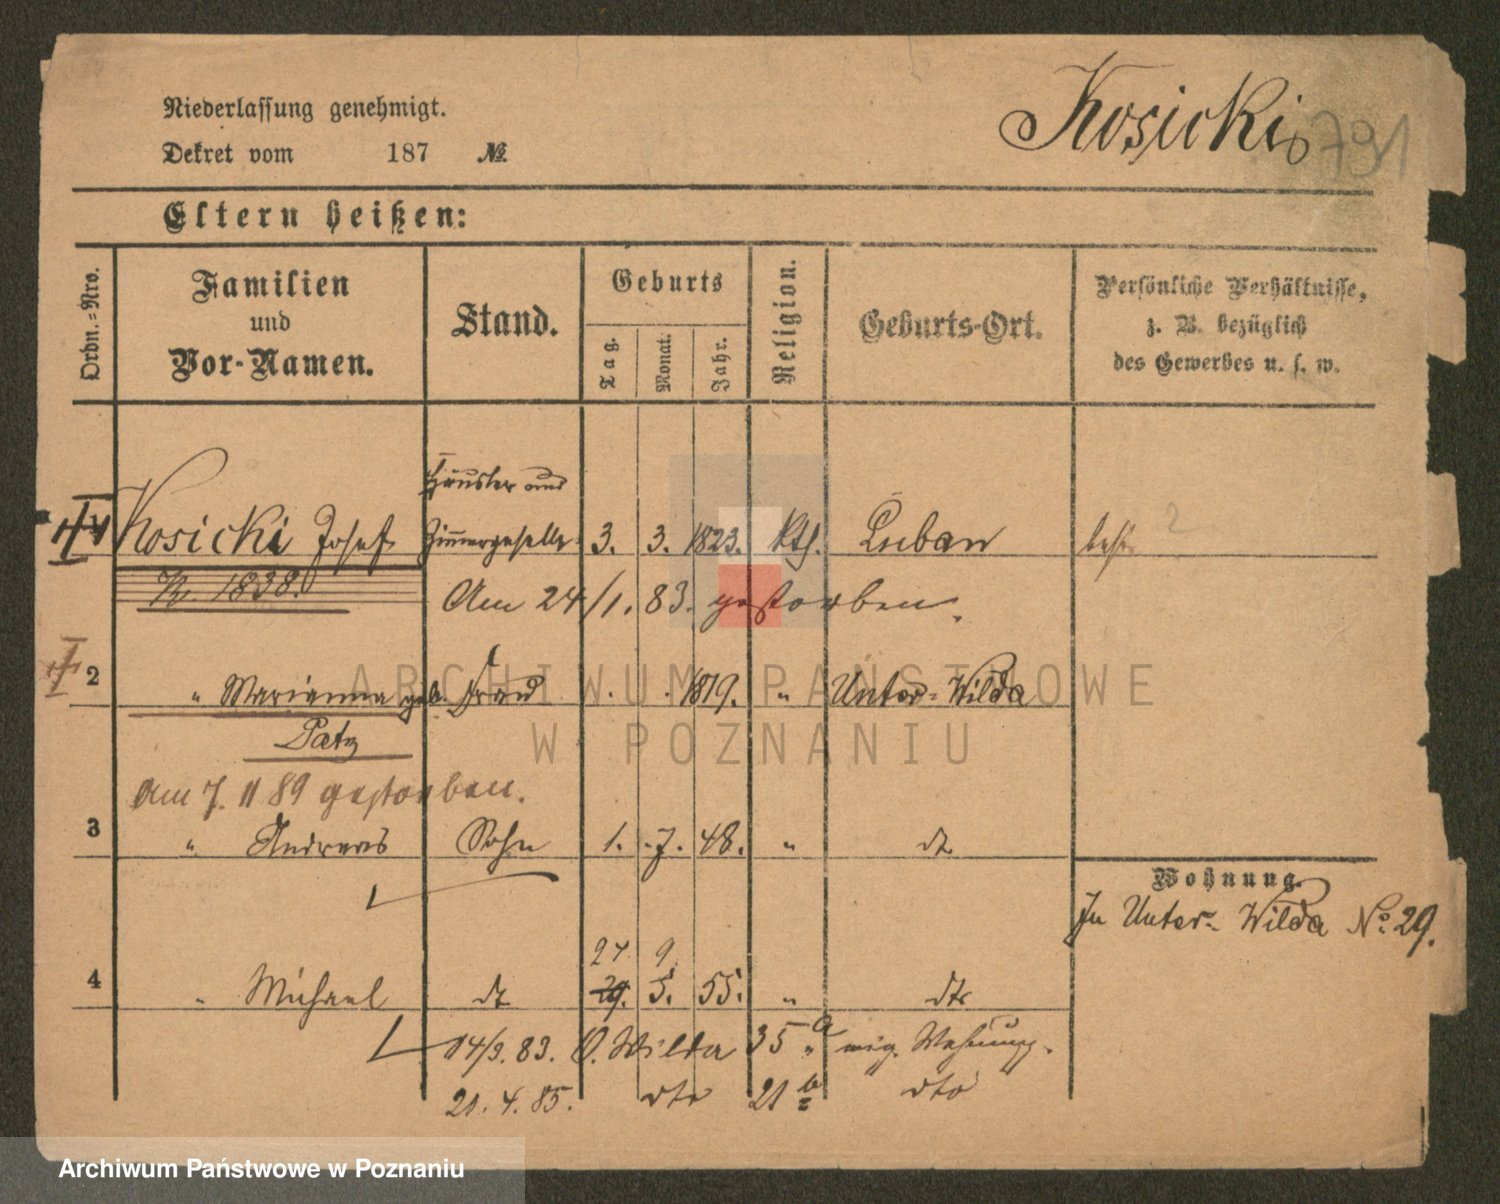 Niederlassung genehmigt.
Kosicki
791
Dekret vom 187 №
Eltern heißen:
Ordn.-Nro.
Familien
und
Vor-Namen.
Stand.
Geburts
Tag.
Monat.
Jahr.
Religion.
Geburts-Ort.
Persönliche Verhältnisse,
z. B. bezüglich
des Gewerbes u. s. w.
Häusler und
Kosicki Josef Zimmergeselle 3. 3. 1823. kth. Luban
1838.
Am 24/1. 83. gestorben.
2 " Marianna geb. Frau 1819. " Unter-Wilda
Patz
am 7. 11 89 gestorben.
3 " Andreas Sohn 1. 7. 48. " dt
Wohnung.
In Unter-Wilda No. 29.
24 9
4 " Michael dt 29. 5. 55. " dto
14/9. 83. O. Wilda 35 a eig. Wohnung.
21. 4. 85. dto 21 dto
ARCHIWUM PAŃSTWOWE
W POZNANIU
Archiwum Państwowe w Poznaniu